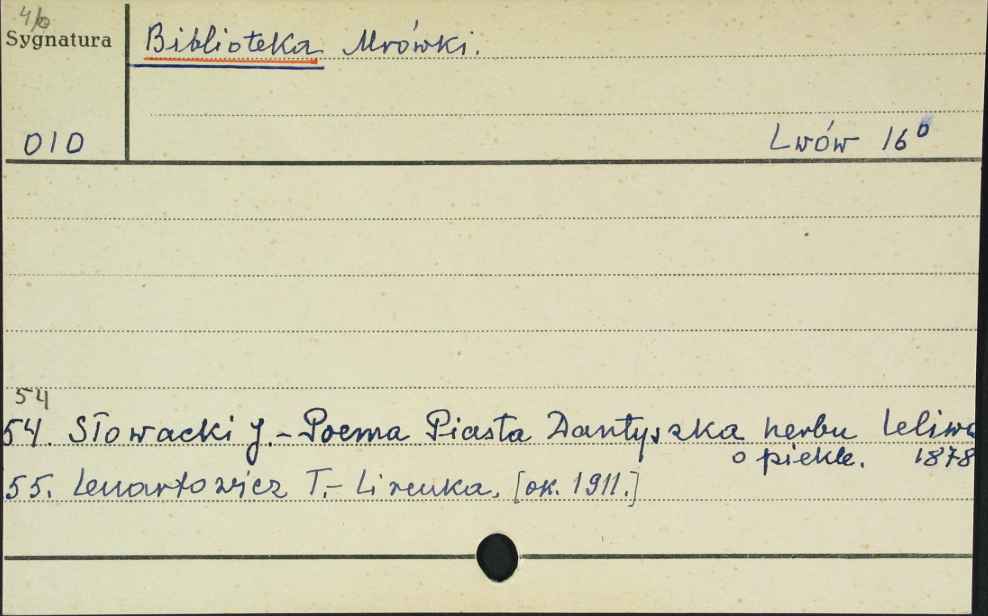 4/b
Sygnatura
Biblioteka Mrówki.
010
Lwów 16°
54
54. Słowacki J. - Poema Piasta Dantyszka herbu Leliwa
o piekle. 1878
55. Lenartowicz T. - Lirenka. [ok. 1911.]